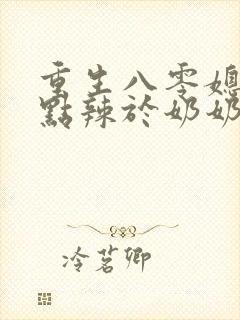 重生八零媳
點辣於奶奶
冷茗卿